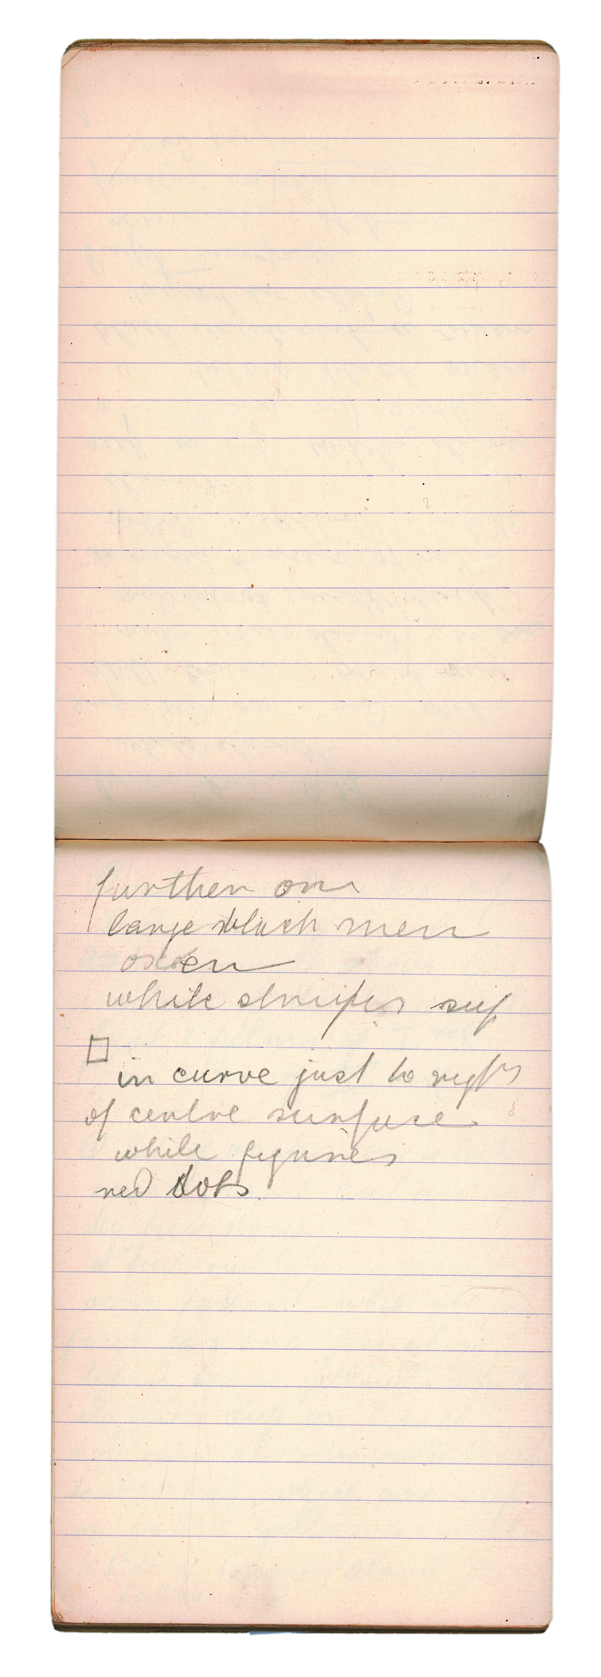 further on
large black men
oxen
white stripes sup
in curve just to right
of centre surfuce
white figures
red dots